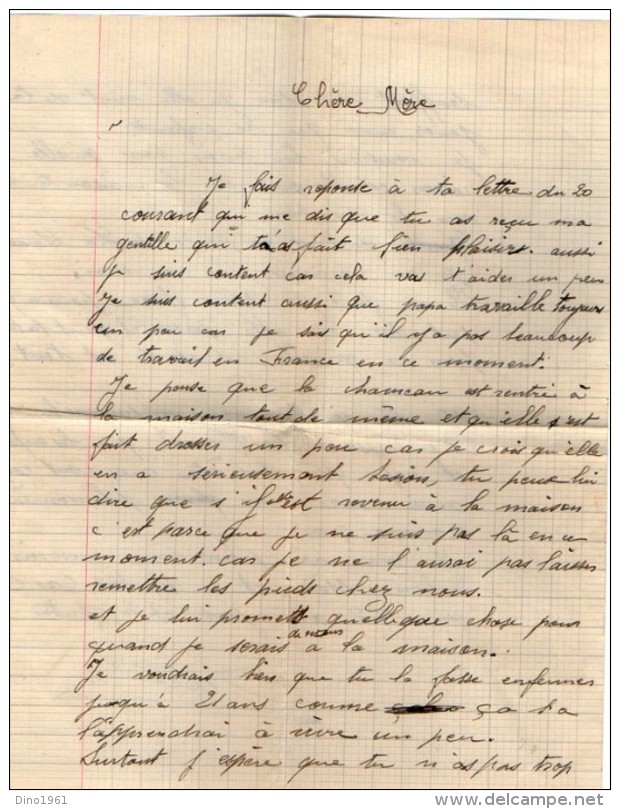 Chère Mère
Je fais reponse à ta lettre du 20
courant qui me dis que tu as reçu ma
gentille qui t'as fait bien plaisir. aussi
je suis content car cela vas t'aider un peu
je suis content aussi que papa travaille toujours
un peu car je sais qu'il y a pas beaucoup
de travail en France en ce moment.
Je pense que la est rentré à
la maison tout de même et qu'elle s'est
fait drosser un peu car je crois qu'elle
en a sérieusement besion, tu peux lui
dire que s'il est revenu à la maison
c'est parce que je ne suis pas là en ce
moment. car je ne l'aurai pas laisser
remettre les pieds chez nous.
et je lui promett quelleque chose pour
quand je serais de retour à la maison.
Je voudrais bien que tu la fasse enfermer
jusqu'à 21 ans comme ça sa
l'apprendrai à vivre un peu.
Surtout j'espère que tu n'as pas trop
Dino1961
www.delcampe.net